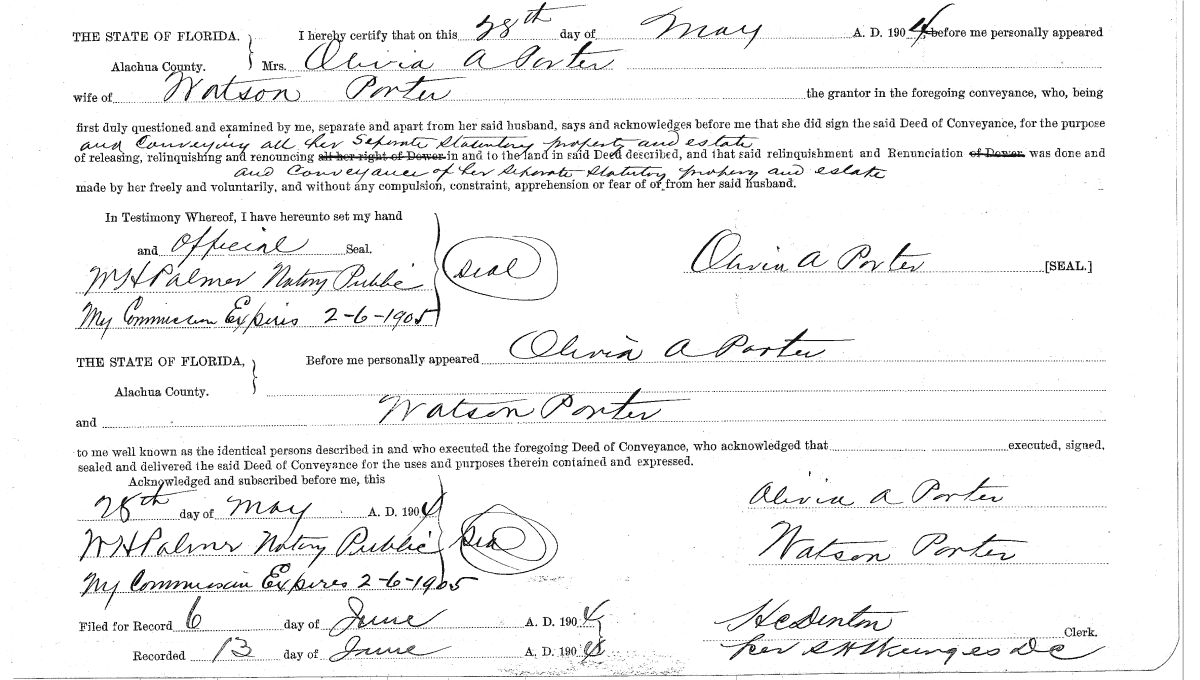 THE STATE OF FLORIDA. I hereby certify that on this 28th day of May A. D. 1904 before me personally appeared
Alachua County. Mrs. Olivia A Porter
wife of Watson Porter the grantor in the foregoing conveyance, who, being
first duly questioned and examined by me, separate and apart from her said husband, says and acknowledges before me that she did sign the said Deed of Conveyance, for the purpose
and Conveying all her Seperate Statutory property and estate
of releasing, relinquishing and renouncing all her right of Dower in and to the land in said Deed described, and that said relinquishment and Renunciation of Dower was done and
and Conveyance of her Seperate Statutory property and estate
made by her freely and voluntarily, and without any compulsion, constraint, apprehension or fear of or from her said husband.
In Testimony Whereof, I have hereunto set my hand
and Official Seal.
W H Palmer Notary Public
My Commission Expires 2-6-1905
Seal
Olivia A Porter [SEAL.]
THE STATE OF FLORIDA, Before me personally appeared Olivia A Porter
Alachua County.
and Watson Porter
to me well known as the identical persons described in and who executed the foregoing Deed of Conveyance, who acknowledged that executed, signed,
sealed and delivered the said Deed of Conveyance for the uses and purposes therein contained and expressed.
Acknowledged and subscribed before me, this
28th day of May A. D. 1904
W H Palmer Notary Public
My Commission Expires 2-6-1905
Seal
Olivia A Porter
Watson Porter
Filed for Record 6 day of June A. D. 1904
Recorded 13 day of June A. D. 190
H C Denton Clerk.
per S H D C